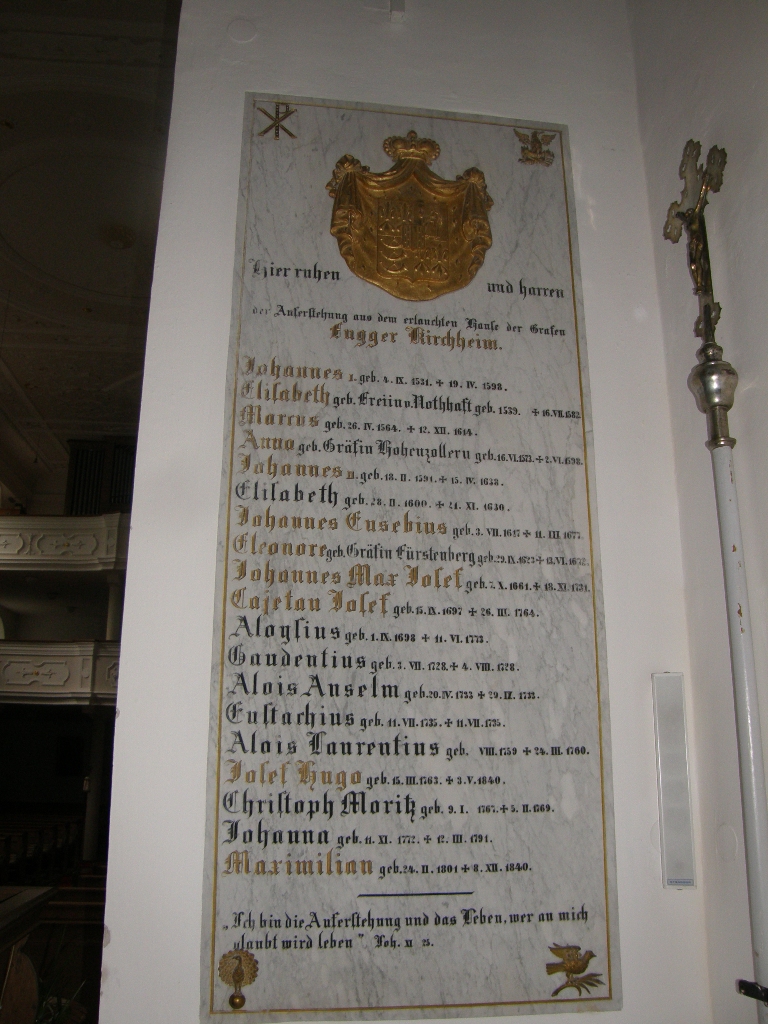 Hier ruhen und harren
der Auferstehung aus dem erlauchten Hause der Grafen
Fugger Kirchheim.
Johannes I. geb. 4. IX. 1531. + 19. IV. 1598.
Elisabeth geb. Freiin v. Nothhaft geb. 1539. + 16. VII. 1582.
Marcus geb. 26. IV. 1564. + 12. XII. 1614.
Anna geb. Gräfin Hohenzollern geb. 16. VI. 1573. + 2. VI. 1598.
Johannes II. geb. 18. II. 1591. + 15. IV. 1638.
Elisabeth geb. 28. II. 1600. + 21. XI. 1630.
Johannes Eusebius geb. 3. VII. 1617 + 11. III. 1672.
Eleonore geb. Gräfin Fürstenberg geb. 29. IX. 1623 + 13. VI.
Johannes Max Josef geb. 7. X. 1661. + 18. XI. 1731.
Cajetan Josef geb. 15. IX. 1697 + 26. III. 1764.
Aloysius geb. 1. IX. 1698 + 11. VI. 1773.
Gaudentius geb. 3. VII. 1728. + 4. VIII. 1728.
Alois Anselm geb. 20. IV. 1733 + 29. IX. 1733.
Eustachius geb. 11. VII. 1735. + 11. VII. 1735.
Alois Laurentius geb. VIII. 1759 + 24. III. 1760.
Josef Hugo geb. 15. III. 1763. + 3. V. 1840.
Christoph Moritz geb. 9. I. 1767. + 5. II. 1769.
Johanna geb. 11. XI. 1772. + 12. III. 1791.
Maximilian geb. 24. II. 1801 + 8. XII. 1840.
„Ich bin die Auferstehung und das Leben, wer an mich
glaubt wird leben" Joh. 11 25.